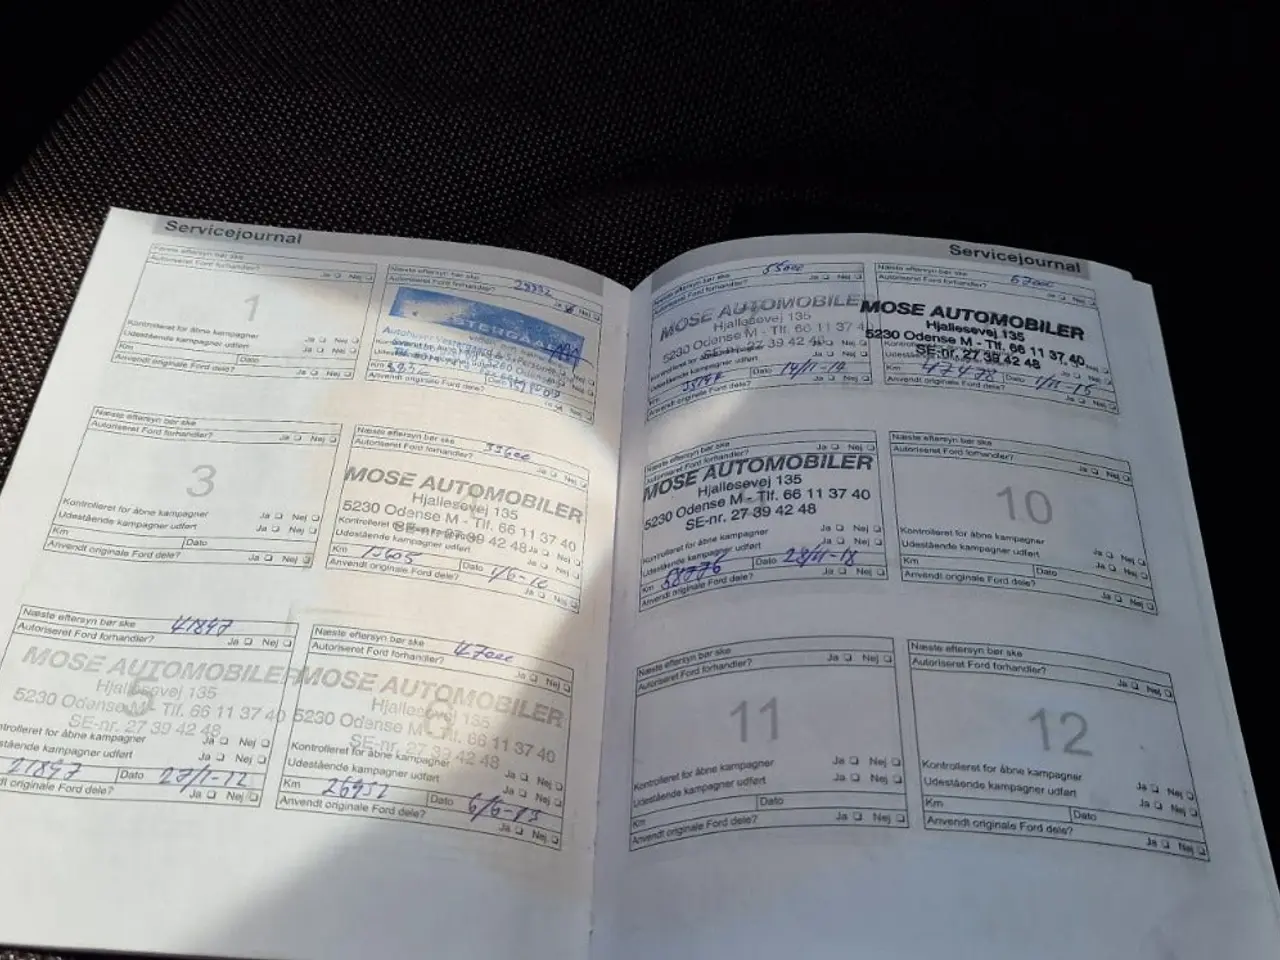 Servicejournal
Første eftersyn bør ske
Autoriseret Ford forhandler?
Ja Nej
1
Kontrolleret for åbne kampagner
Ja Nej
Udestående kampagner udført
Ja Nej
Km
Dato
Anvendt originale Ford dele?
Ja Nej
Næste eftersyn bør ske
Autoriseret Ford forhandler?
Km
Anvendt originale Ford dele?
Næste eftersyn bør ske
Autoriseret Ford forhandler?
Ja Nej
3
Kontrolleret for åbne kampagner
Ja Nej
Udestående kampagner udført
Ja Nej
Km
Dato
Anvendt originale Ford dele?
Ja Nej
Næste eftersyn bør ske
Autoriseret Ford forhandler?
Ja Nej
MOSE AUTOMOBILER
Hjallesevej 135
5230 Odense M - Tlf. 66 11 37 40
SE-nr. 27 39 42 48
Kontrolleret
Ja Nej
Udestående kampagner udført
Ja Nej
Km
Dato 1/6-10
Anvendt originale Ford dele?
Ja Nej
Næste eftersyn bør ske 41847
Autoriseret Ford forhandler?
Ja Nej
MOSE AUTOMOBILER
Hjallesevej 135
5
5230 Odense M - Tlf. 66 11 37 40
SE-nr. 27 39 42 48
åbne kampagner
Ja Nej
kampagner udført
Ja Nej
21847
Dato 27/1-12
originale Ford dele?
Ja Nej
Næste eftersyn bør ske 47000
Autoriseret Ford forhandler?
Ja Nej
MOSE AUTOMOBILER
Hjallesevej 135
5230 Odense M - Tlf. 66 11 37 40
SE-nr. 27 39 42 48
Kontrolleret for åbne kampagner
Ja Nej
Udestående kampagner udført
Ja Nej
Km 26952
Dato 6/6-13
Anvendt originale Ford dele?
Ja Nej
Servicejournal
Næste eftersyn bør ske 55000
Autoriseret Ford forhandler?
Ja Nej
MOSE AUTOMOBILE
Hjallesevej 135
5230 Odense M - Tlf. 66 11 37 4
SE-nr. 27 39 42 48
Udestående kampagner udført
Ja Nej
Km
Dato
Anvendt originale Ford dele?
Ja Nej
Næste eftersyn bør ske 67000
Autoriseret Ford forhandler?
Ja Nej
MOSE AUTOMOBILER
Hjallesevej 135
5230 Odense M - Tlf. 66 11 37 40
SE-nr. 27 39 42 48
Km 47478
Dato 1/11-15
Anvendt originale Ford dele?
Ja Nej
Næste eftersyn bør ske
Autoriseret Ford forhandler?
Ja Nej
MOSE AUTOMOBILER
Hjallesevej 135
5230 Odense M - Tlf. 66 11 37 40
SE-nr. 27 39 42 48
Kontrolleret for åbne kampagner
Ja Nej
Udestående kampagner udført
Ja Nej
Km 58776
Dato 28/11-18
Anvendt originale Ford dele?
Ja Nej
Næste eftersyn bør ske
Autoriseret Ford forhandler?
Ja Nej
10
Kontrolleret for åbne kampagner
Ja Nej
Udestående kampagner udført
Ja Nej
Km
Dato
Anvendt originale Ford dele?
Ja Nej
Næste eftersyn bør ske
Autoriseret Ford forhandler?
Ja Nej
11
Kontrolleret for åbne kampagner
Ja Nej
Udestående kampagner udført
Ja Nej
Km
Dato
Anvendt originale Ford dele?
Ja Nej
Næste eftersyn bør ske
Autoriseret Ford forhandler?
Ja Nej
12
Kontrolleret for åbne kampagner
Ja Nej
Udestående kampagner udført
Ja Nej
Km
Dato
Anvendt originale Ford dele?
Ja Nej